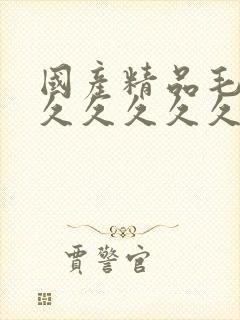 國產精品毛
久久久久久
賈警官